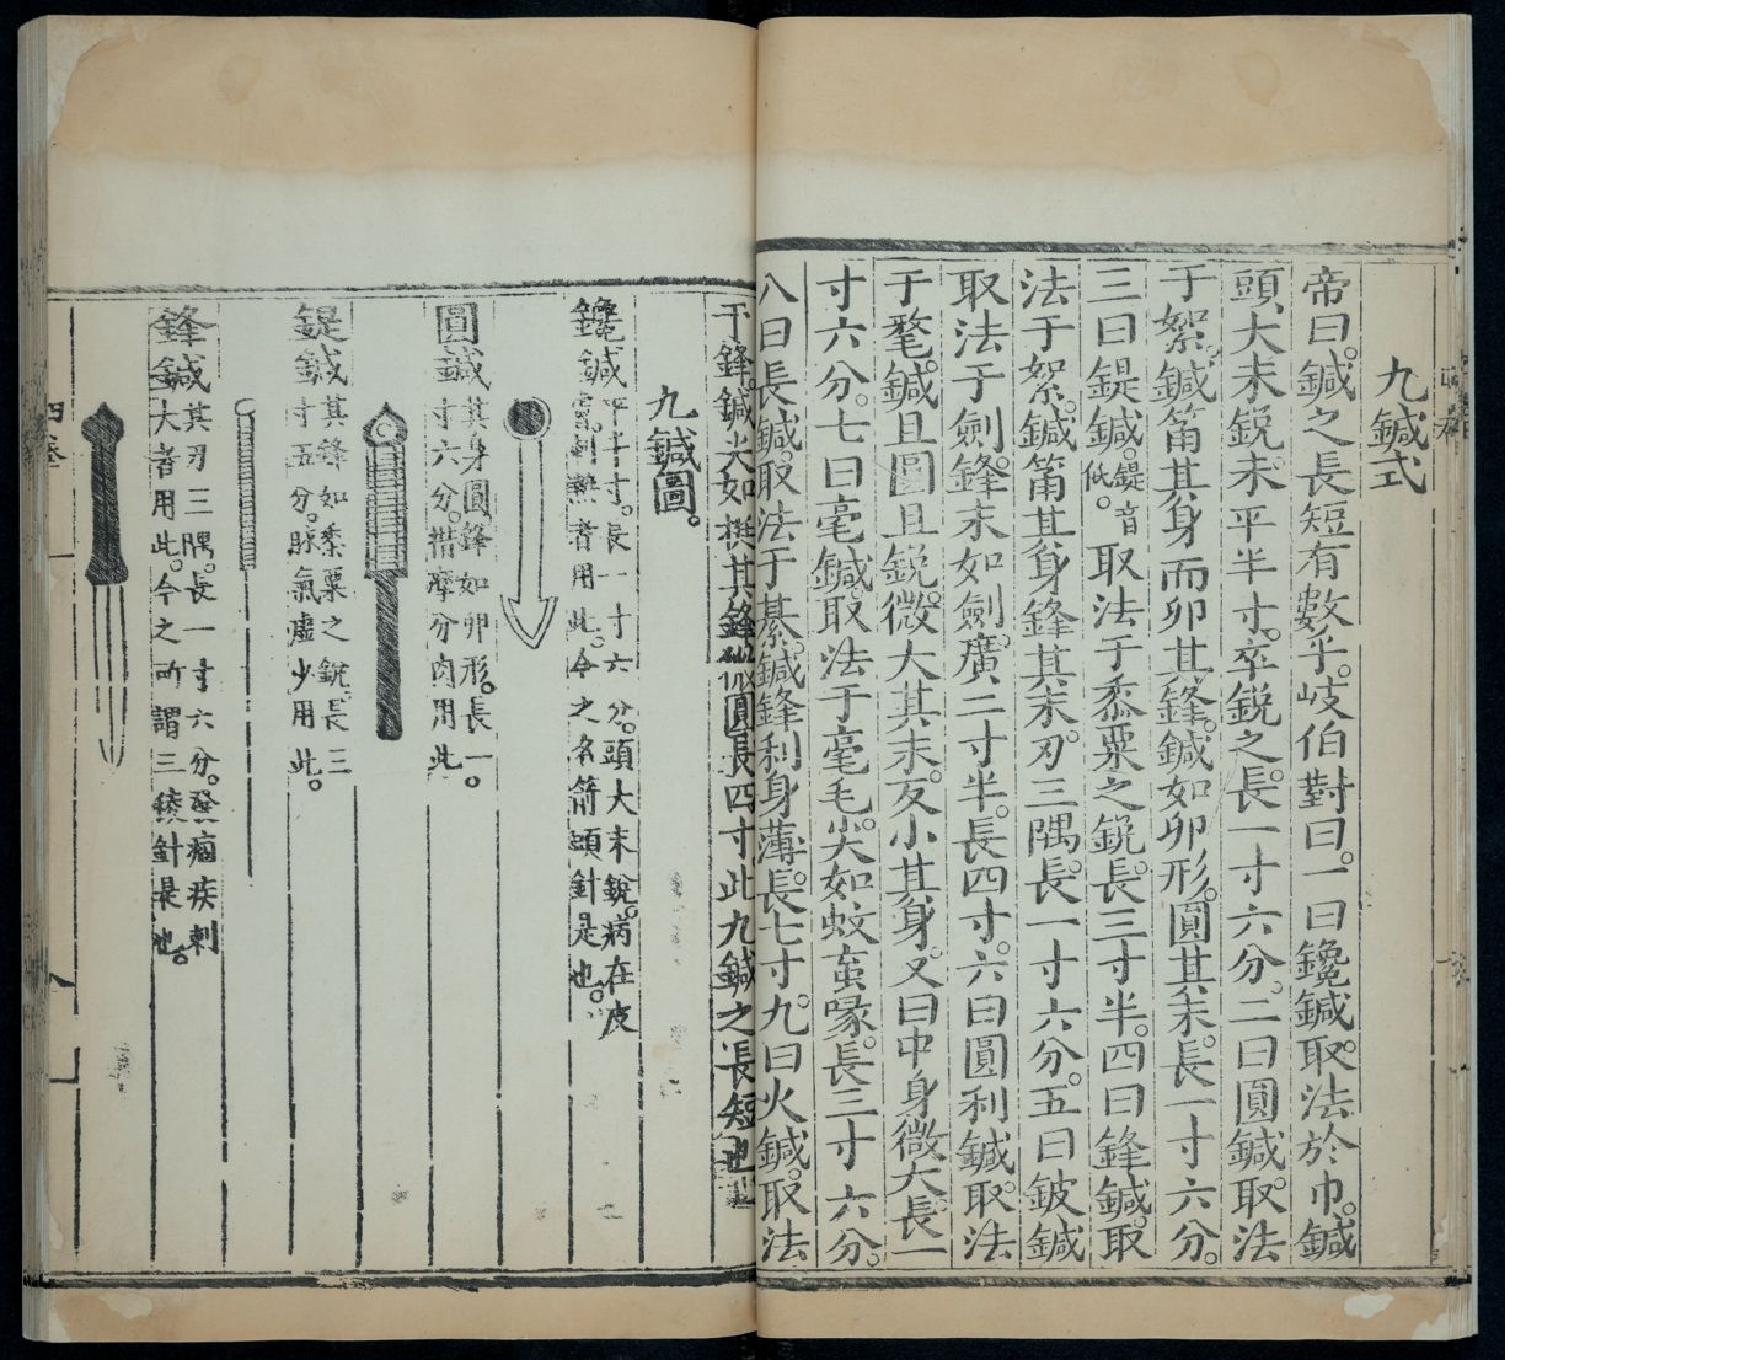 九鍼式
帝曰。鍼之長短有數乎。岐伯對曰。一曰鑱鍼取。法於巾。鍼
頭、大末銳。末平半寸。卒銳之。長一寸六分。二曰圓鍼。取法
于絮。鍼筩其身而卵其鋒。鍼如卵形。圓其末。長一寸六分。
三曰鍉鍼。鍉音低。取法于黍粟之銳。長三寸半。四曰鋒鍼。取
法于絮。鍼筩其身鋒其末。刃三隅。長一寸六分。五曰鈹鍼
取法于劍。鋒末如劍。廣二寸半。長四寸。六曰圓利鍼。取法
于氂。鍼且圓且銳。微大其末。反小其身。又曰中身微大長一
寸六分。七曰毫鍼。取法于毫毛。尖如蚊䖟喙。長三寸六分。
八曰長鍼。取法于綦。鍼鋒利身薄。長七寸。九曰火鍼。取法
于鋒。鍼尖如挺其鋒 圓長四寸此九鍼之長短也
九鍼圖。
鑱鍼 平半寸。長一寸六分。頭大末銳。病在皮
膚。刺熱者用此。今之名箭頭針是也。
圓鍼 其身圓鋒如卵形。長一
寸六分。揩摩分肉用此。
鍉鍼 其鋒如黍粟之銳。長三
寸五分。脉氣虛少用此。
鋒鍼 其刃三隅。長一寸六分。發痼疾刺
大者用此。今之所謂三稜針是也。
四卷